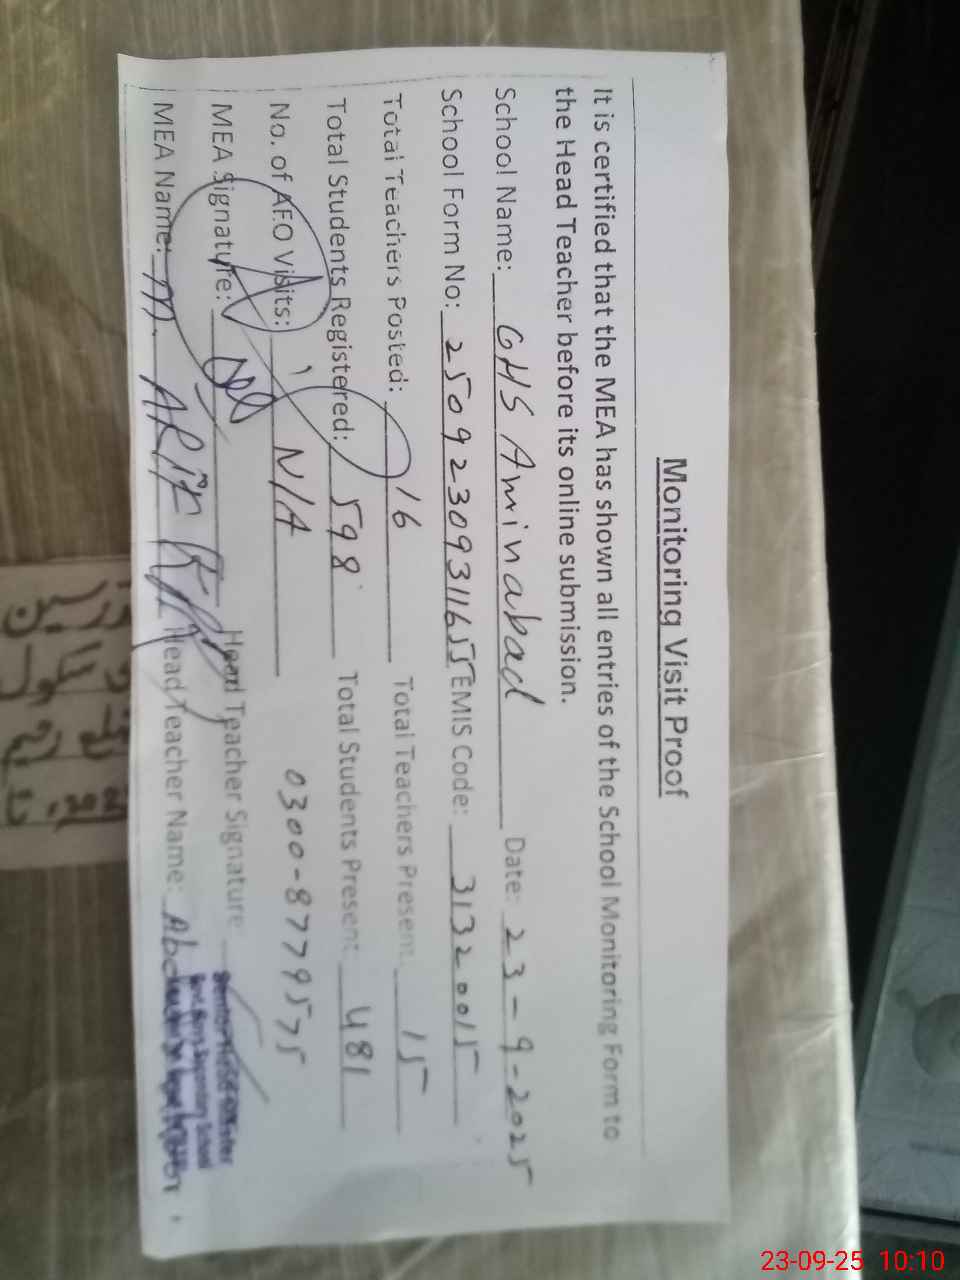 Monitoring Visit Proof
It is certified that the MEA has shown all entries of the School Monitoring Form to
the Head Teacher before its online submission.
School Name: GHS Aminabad Date: 23-9-2025
School Form No: 25092309311655 EMIS Code: 31320015
Total Teachers Posted: 16 Total Teachers Present: 15
Total Students Registered: 598 Total Students Present: 481
No. of AEO Visits: N/A 0300-8779575
MEA Signature: Head Teacher Signature
MEA Name: M. ARIF Head Teacher Name:
Senior Head Master
23-09-25 10:10